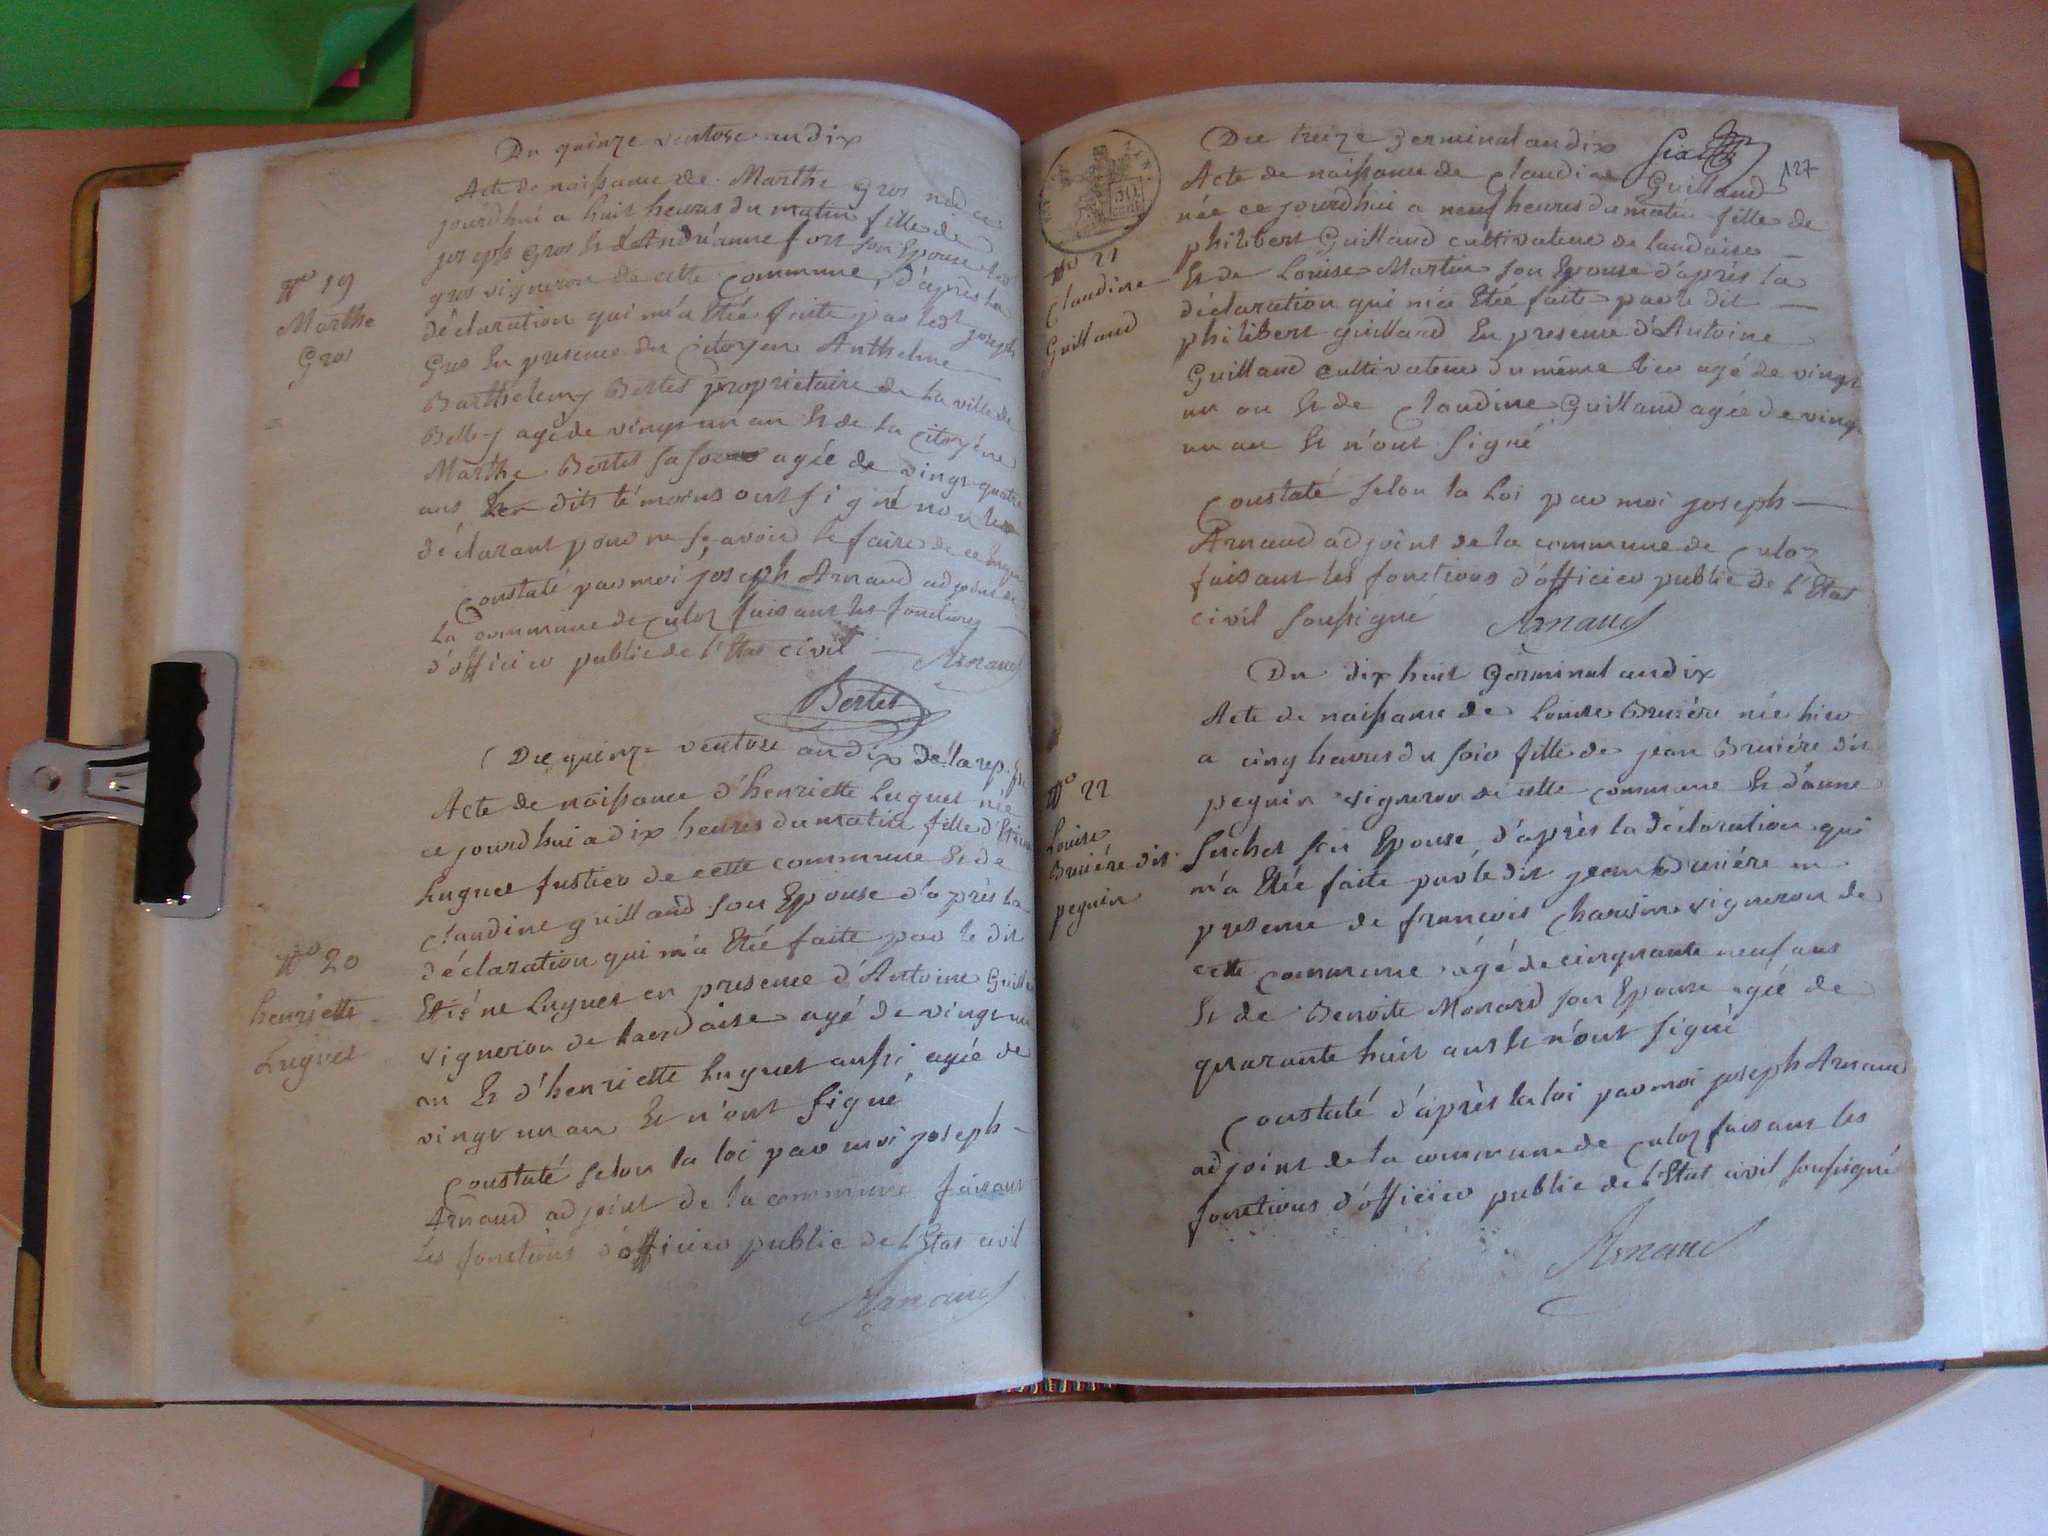 Du quinze ventose an dix
Acte de naissance de Marthe Gros née ce
jourd'hui a huit heures du matin fille de
joseph Gros Et d'Andréanne fort son Epouse
gros vigneron de cette commune, d'après la
déclaration qui m'a Etée faite par ledt joseph
Gros En presence du Citoyen Anthelme
Barthelemy Bertet propriétaire de la ville de
Belley agé de vingt un an Et de la Citoyéne
Marthe Bertet sa soeur agée de vingt quatre
ans dits témoins ont signé non le
déclarant pour ne sçavoir le faire de ce
Constaté par moi joseph Arnaud adjoint de
La commune de Culoz faisant les fonctions
d'officier public de l'Etat civil Arnaud
Bertet
N° 19
Marthe
Gros
Du quinze ventose an dix de la rep.
Acte de naissance d'henriette Luguet née
ce jourd'hui a dix heures du matin fille d'Etiene
Luguet fustier de cette commune Et de
Claudine guilland son Epouse d'après la
déclaration qui m'a Etée faite par le dit
Etiéne Luguet en presence d'Antoine Guilland
vigneron de landaise agé de vingt un
an Et d'henriette Luguet aussi agée de
vingt un an Et n'ont signé
Constaté selon la loi par moi joseph
Arnaud adjoint de la commune faisant
Les fonctions d'officier public de l'Etat civil
Arnaud
N° 20
henriette
Luguet
127
Du treize Germinal an dix
Acte de naissance de Claudine Guilland
née ce jourd'hui a neuf heures du matin fille de
philibert Guilland cultivateur de landaise
Et de Louise Martin son Epouse d'après la
déclaration qui m'a Etée faite par le dit
philibert guilland En presence d'Antoine
Guilland cultivateur du même lieu agé de vingt
un an Et de Claudine Guilland agée de vingt
un an Et n'ont signé
Constaté selon la Loi par moi joseph
Arnaud adjoint de la commune de Culoz
faisant les fonctions d'officier public de l'Etat
civil soussigné Arnaud
N° 21
Claudine
Guilland
50
Du dix huit Germinal an dix
Acte de naissance de Louise Bruiére née hier
a cinq heures du soir fille de jean Bruiére dit
peguin vigneron de cette commune Et d'anne
son Epouse, d'après la déclaration qui
m'a Etée faite par le dit jean Bruiére en
presence de françois vigneron de
cette commune agé de cinquante neuf ans
Et de Benoite Monard son Epouse agée de
quarante huit ans Et n'ont signé
Constaté d'après la loi par moi joseph Arnaud
adjoint de la commune de Culoz faisant les
fonctions d'officier public de l'Etat civil soussigné
Arnaud
N° 22
Louise
Bruiére dit
peguin